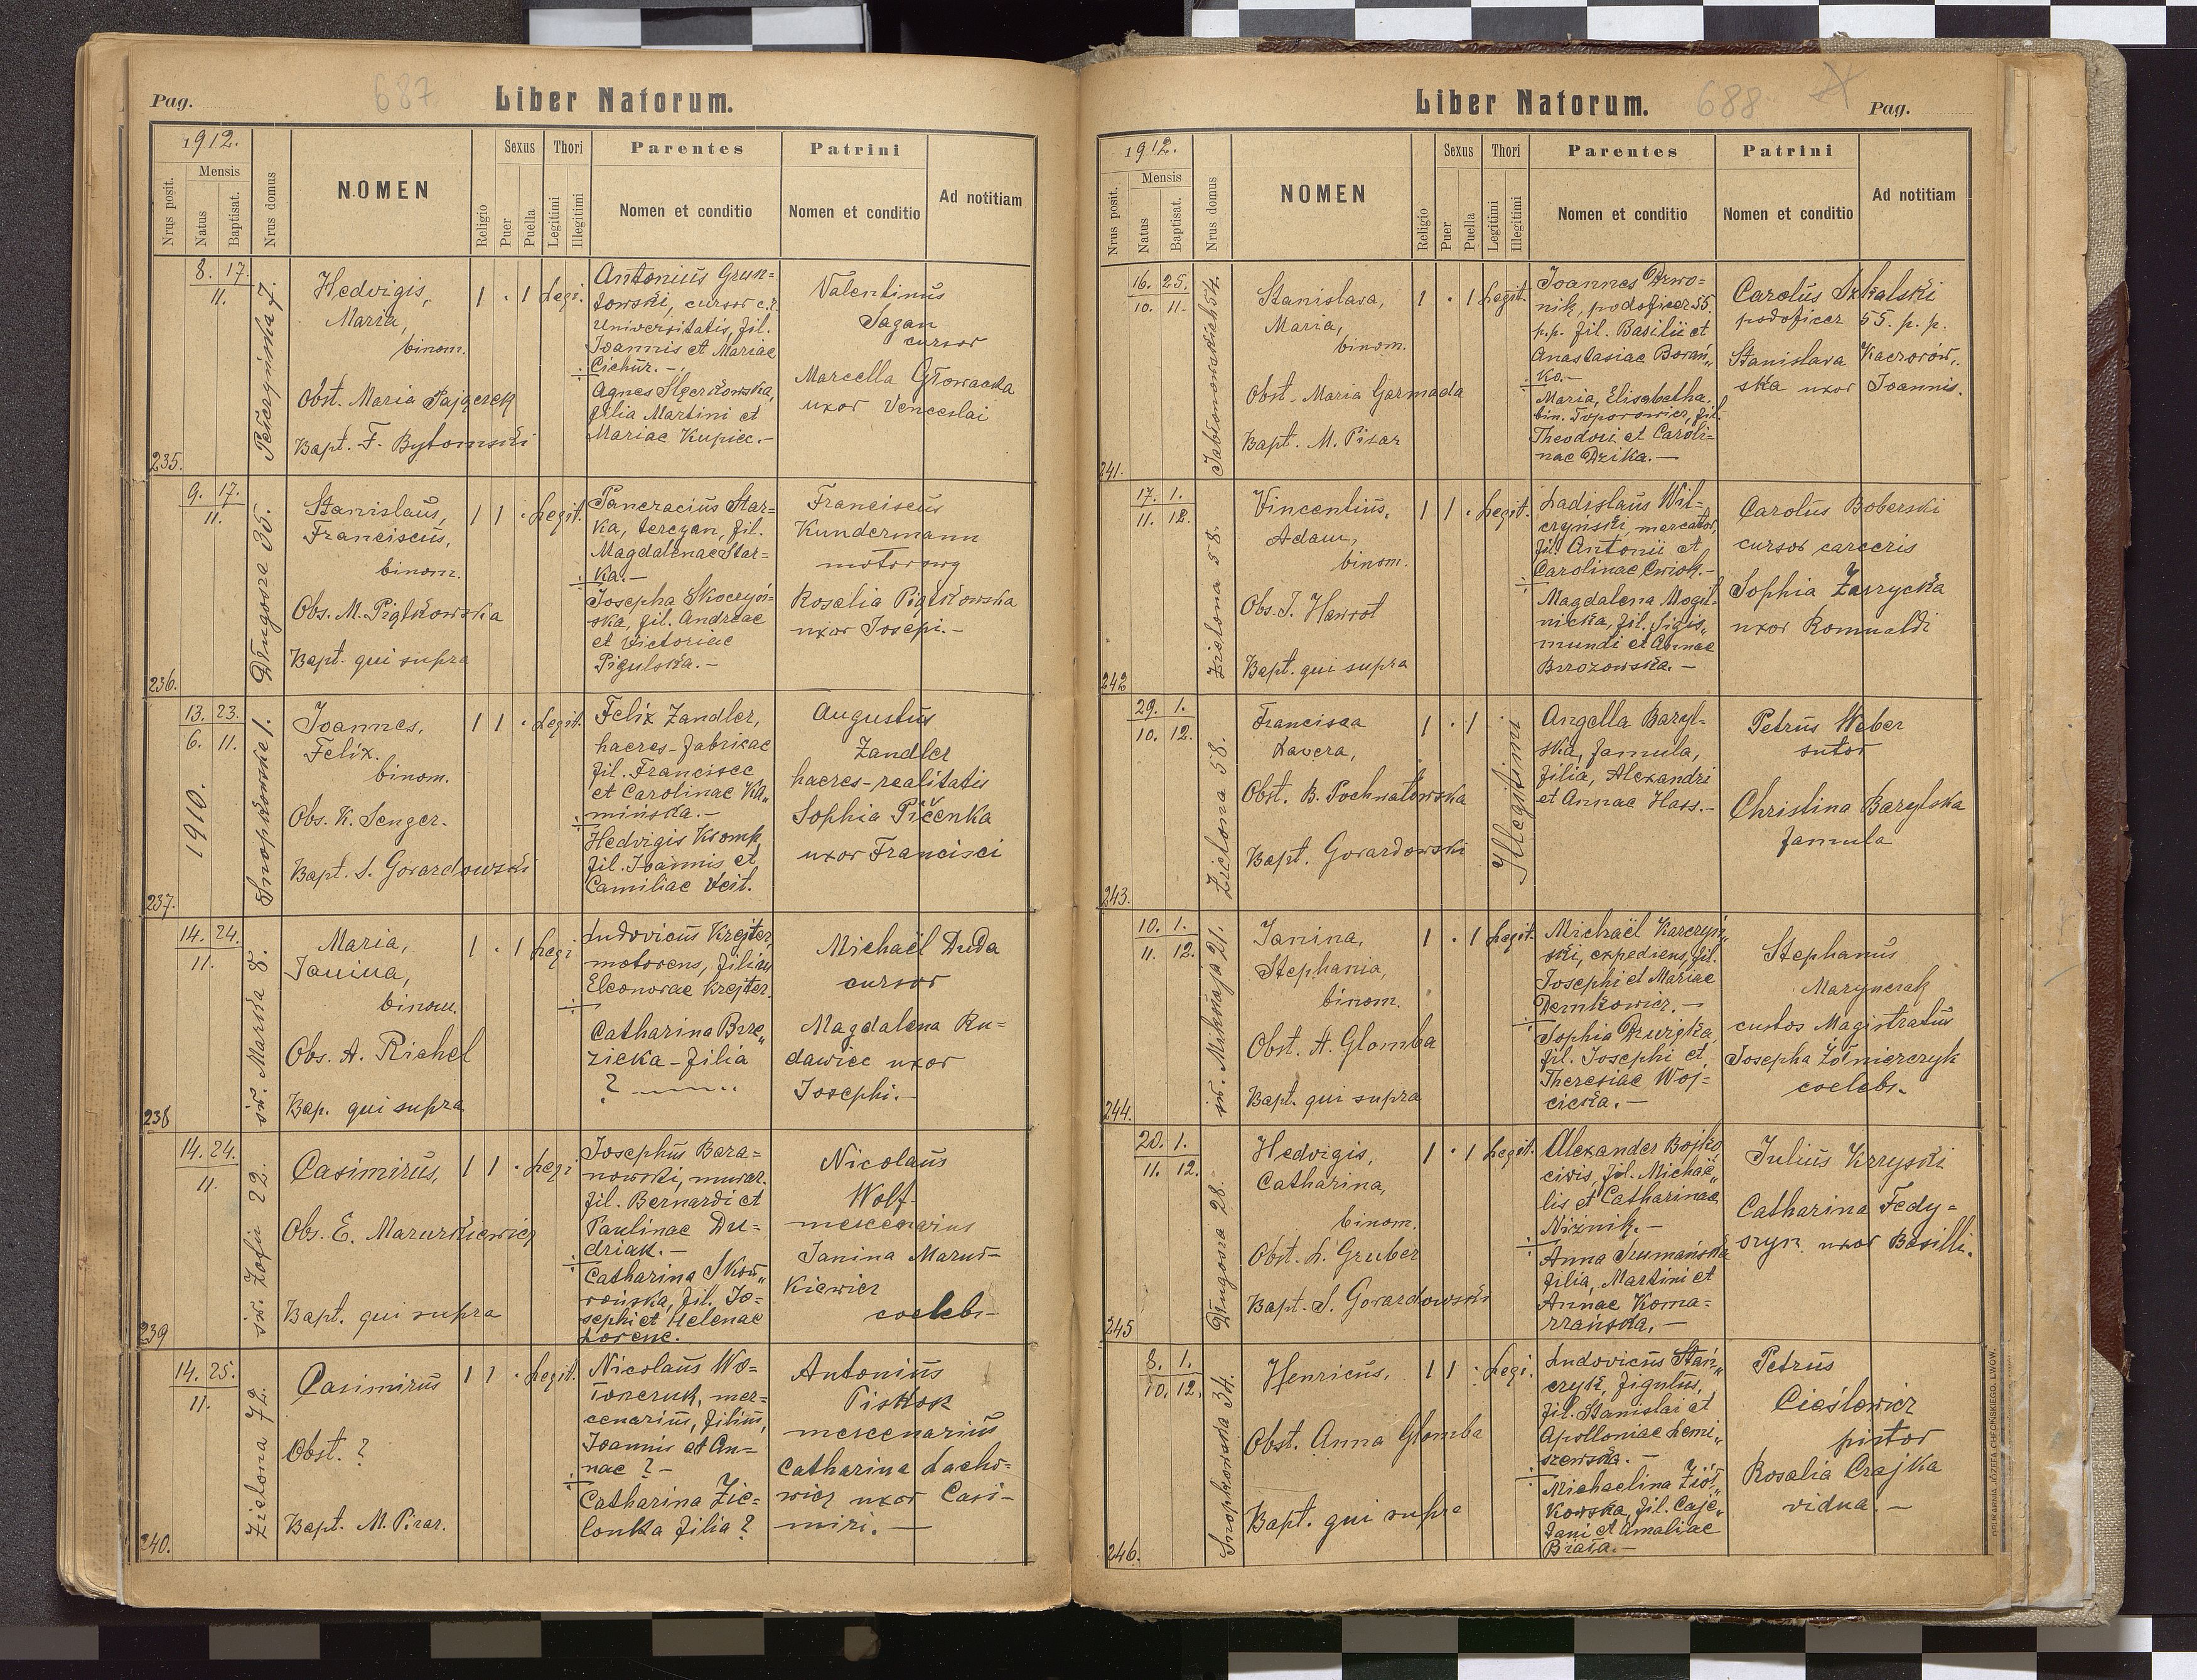 Pag.
687
Liber Natorum.
1912.
Nrus posit.
Mensis
Natus
Baptisat.
Nrus domus
NOMEN
Religio
Sexus
Puer
Puella
Thori
Legitimi
Illegitimi
Parentes
Nomen et conditio
Patrini
Nomen et conditio
Ad notitiam
235.
8. 17.
11.
7.
Hedvigis,
Maria,
binom.
Obst. Maria Pajączek
Bapt. F. Bytomski
1 . 1 Legi.
Antonius Grun=
towski, cursor c.r.
universitatis, fil.
Joannis et Mariae
Cichur. -.
Agnes
filia Martini et
Mariae Kupiec. -
Valentinus
Sagan
cursor
Marcella Głowacka
uxor Venceslai
236.
9. 17.
11.
Długosza 35.
Stanislaus,
Franciscus,
binom.
Obs. M. Piątkowska
Bapt. qui supra
1 1 . Legit.
Pancracius Star=
ka, tercyan, fil.
Magdalenae Star=
ka. -
Josepha Skoczyń=
ska, fil. Andreae
et Victoriae
Pigulska. -
Franciscus
Kundermann
motorowy
Rosalia Piątkowska
uxor Josepi. -
237.
13. 23.
6. 11.
1910.
Snopkowska 1.
Joannes,
Felix.
binom.
Obs. K. Senger.
Bapt. S. Gorardowski
1 1 . Legit.
Felix Zandler,
haeres-fabricae
fil. Francisec
et Carolinae Ka„
mińska. -
Hedvigis Ksomp,
fil. Joannis et
Camiliae Veit.
Augustus
Zandler
haeres-realitatis
Sophia Pičenka
uxor Francisci
238
14. 24.
11.
św. Marka 8.
Maria,
Janina,
binom.
Obs. A. Richel
Bap. qui supra
1 . 1 Legi
Ludovicus Krejter,
motorens, filius
Eleonorae Krejter.
Catharina Brze„
zicka - filia
?
Michaël Duda
cursor
Magdalena Ru=
dawiec uxor
Josephi. -
239
14. 24.
11.
św. Zofii 22.
Casimirus,
Obs. E. Mazurkiewicz
Bapt. qui supra
1 1 . Legi
Josephus Bara=
nowski, murar.
fil. Bernardi et
Paulinae Du=
driak. -
Catharina Skow„
rońska, fil. Jo=
sephi et Helenae
Lorenc.
Nicolaus
Wolf
mercenarius
Janina Mazur=
kiewicz
coelebs
240.
14. 25.
11.
Zielona 72.
Casimirus
Obst. ?
Bapt. M. Pisar.
1 1 . Legit.
Nicolaus Wo=
łonczuk, mer=
cenarius, filius,
Joannis et An=
nae ? -
Catharina Zie=
lonka filia ?
Antonius
Piskok
mercenarius
Catharina Lacho=
wicz uxor Casi-
miri. -
Liber Natorum.
688
Pag.
1912.
Nrus posit.
Mensis
Natus
Baptisat.
Nrus domus
NOMEN
Religio
Sexus
Puer
Puella
Thori
Legitimi
Illegitimi
Parentes
Nomen et conditio
Patrini
Nomen et conditio
Ad notitiam
241.
16. 25.
10. 11.
Jabłonowskich 54.
Stanislava,
Maria,
binom.
Obst. Maria Garmada
Bapt. M. Pisar
1 . 1 Legit.
Joannes Dzwo=
nik, podoficer 55.
p.p. fil. Basilii et
Anastasiae Borań„
ko. -
Maria, Elisabetha,
bin. Toporowicz, fil.
Theodori et Caroli=
nae Dzika. -
Carolus Szkalski
podoficer 55. p. p.
Stanislava Kaczorow„
ska uxor Joannis.
242
17. 1.
11. 12.
Zielona 58.
Vincentius,
Adam,
binom.
Obs. J. Hawrot
Bapt. qui supra
1 1 . Legit.
Ladislaus Wil=
czyński, mercator,
fil. Antonii et
Carolinae Cwiok. -
Magdalena Mogil=
nicka, fil. Sigis„
mundi et Annae
Brzozowska. -
Carolus Boberski
cursor carceris
Sophia Zarycka
uxor Romualdi
243.
29. 1.
10. 12.
Zielona 58.
Francisca
Xavera,
Obst. B. Pochnatowska
Bapt. Gorardowski
1 . 1
Illegitimi
Angella Baryl=
ska, famula,
filia, Alexandri
et Annae Hass. -
Petrus Weber
sutor
Christina Barylska
famula
244.
10. 1.
11. 12.
św. Mikołaja 21.
Janina,
Stephania,
binom.
Obst. A. Glomba
Bapt. qui supra
1 . 1 Legit.
Michaël Karczyń„
ski, expediens, fil.
Josephi et Mariae
Demkowicz. -
Sophia Dzwigka,
fil. Josephi et
Theresiae Woj=
cicka. -
Stephanus
Marynczak
custos Magistratus
Josepha Żołnierczyk
coelebs.
245
20. 1.
11. 12.
Długosza 28.
Hedvigis,
Catharina,
binom.
Obst. L. Gruber
Bapt. S. Gorardowski
1 . 1 Legit.
Alexander Bojko,
civis, fil. Michaë„
lis et Catharinae
Niżnik. -
Anna Szumańska
filia, Martini et
Annae Koma=
rzańska. -
Julius Krzyski
Catharina Fedy=
szyn uxor Basilli.
246.
8. 1.
10. 12.
Snopkowska 34.
Henricus,
Obst. Anna Glomba
Bapt. qui supra
1 1 . Legi.
Ludovicus Stań„
czyk, figulus,
fil. Stanislai et
Apolloniae Lemi„
szewska. -
Michaelina Ziół„
kowska, fil. Caje„
tani et Amaliae
Biała. -
Petrus
Cieślewicz
pistor
Rosalia Czajka
vidua. -
DRUKARNIA JÓZEFA CHĘCIŃSKIEGO, LWÓW.